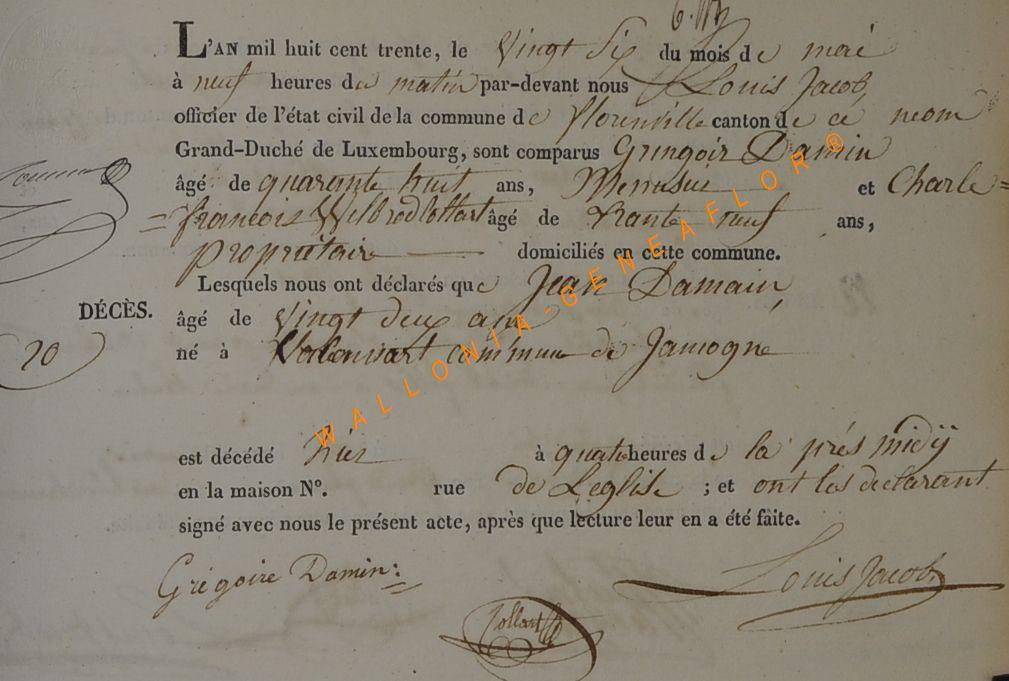 L'AN mil huit cent trente, le Vingt Six du mois de mai
à neuf heures du matin par-devant nous Louis Jacob,
officier de l'état civil de la commune de florenville canton de ce nom
Grand-Duché de Luxembourg, sont comparus Gringoir Damin
âgé de quarante huit ans, Menusier et Charle=
=francois Wilbrod Collart âgé de trante neuf ans,
propriitaire domiciliés en cette commune.
Lesquels nous ont déclarés que Jean Damain,
DÉCÈS. âgé de Vingt deux ans
20 né à Valensart commune de Jamogne
est décédé hier à quatre heures de la prés midÿ
en la maison N°. rue de Leglise ; et ont les declarant
signé avec nous le présent acte, après que lecture leur en a été faite.
Grégoire Damin: Louis Jacob,
Collart
WALLONIA-GENEAFLOR®